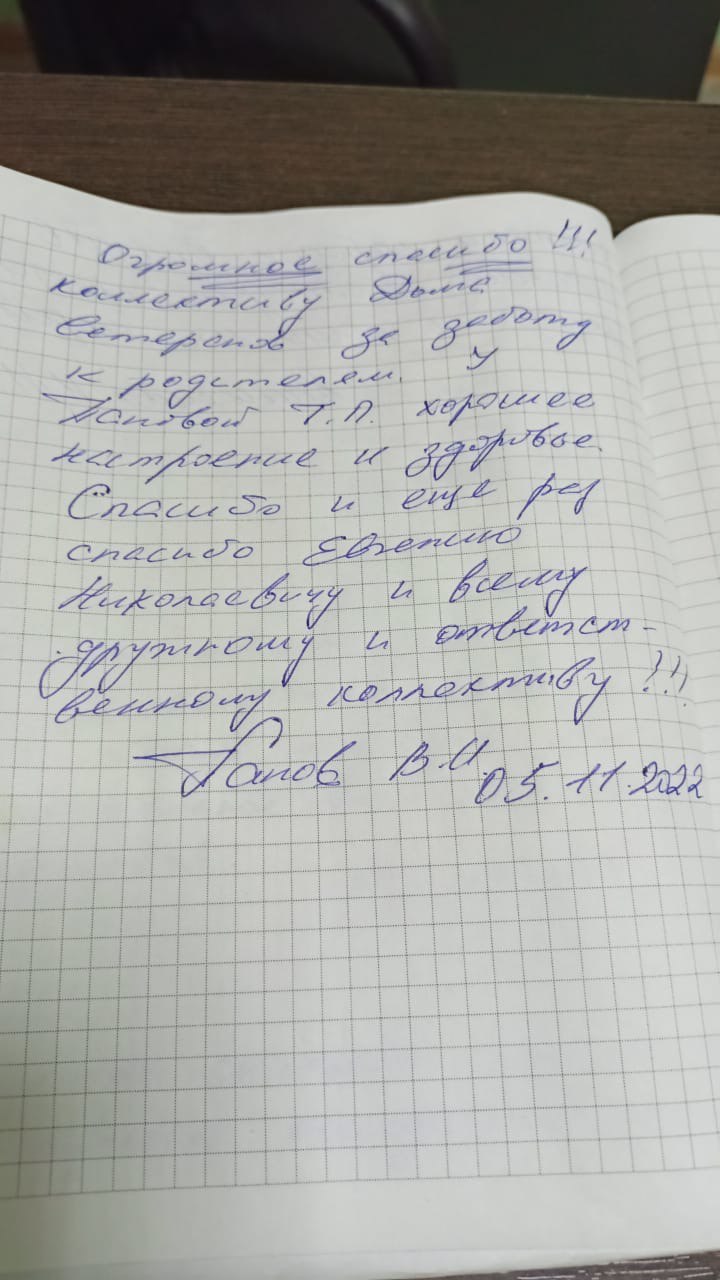 Огромное спасибо !!!
коллективу Дома
Ветеранов за заботу
к родителям. У
Пановой Т.П. хорошее
настроение и здоровье.
Спасибо и еще раз
спасибо Евгению
Николаевичу и всему
дружному и ответст-
венному коллективу !!!
Панов В.И. 05.11.2022